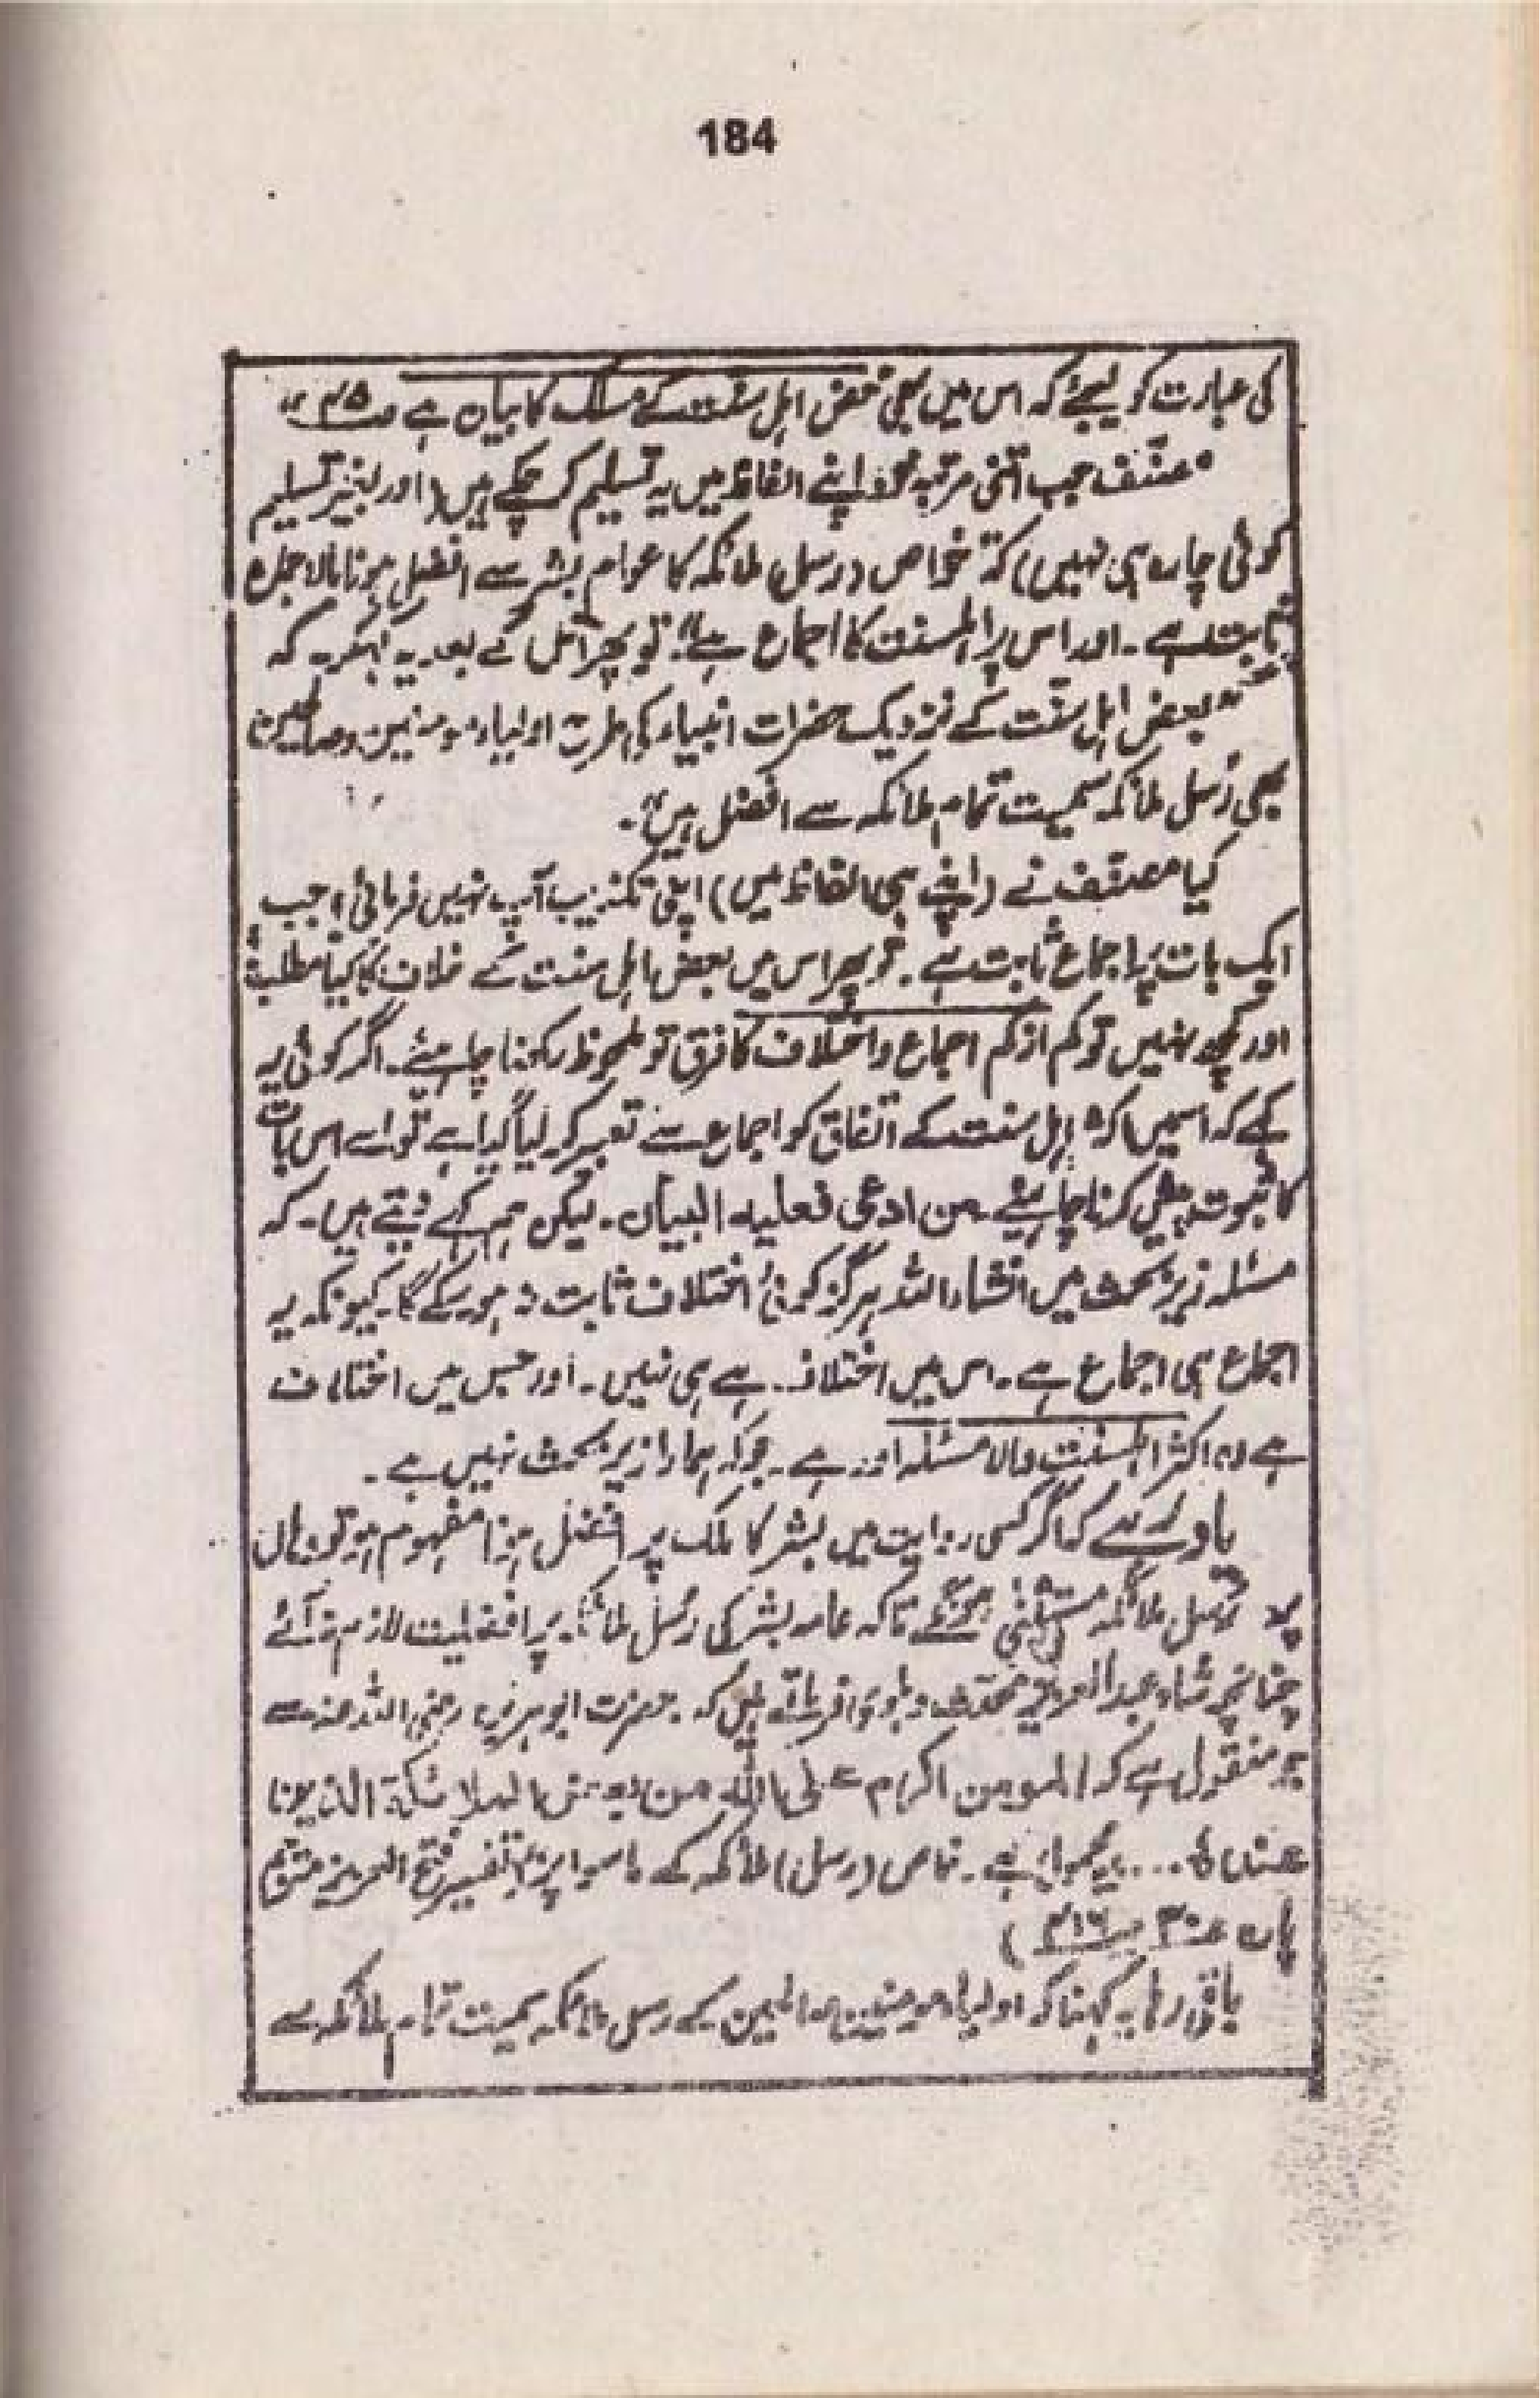 184
کی عبارت کو لیجئے کہ اس میں بھی بعض اہل سنت کے مسلک کا بیان ہے
مصنف جب اتنی مرتبہ خود اپنے الفاظ میں یہ تسلیم کر چکے ہیں (اور بغیر تسلیم
کوئی چارہ ہی نہیں) کہ خواص (رسل) ملائکہ کا عوام بشر سے افضل ہونا بالاجماع
ثابت ہے ۔ اور اس پر اہلسنت کا اجماع ہے"۔ تو پھر اس کے بعد یہ کہ
"بعض اہل سنت کے نزدیک حضرات انبیاء کی طرح اولیاء مومنین و صالحین
بھی رُسل ملائکہ سمیت تمام ملائکہ سے افضل ہیں"۔
کیا مصنف نے (اپنے ہی الفاظ میں) اپنی تکذیب آپ نہیں فرمائی؟ جب
ایک بات پر اجماع ثابت ہے ۔ تو پھر اس میں بعض اہل سنت کے خلاف کا کیا مطلب؟
اور کچھ نہیں تو کم از کم اجماع و اختلاف کا فرق تو ملحوظ رکھنا چاہیئے ۔ اگر کوئی یہ
کہے کہ اسمیں اکثر اہل سنت کے اتفاق کو اجماع سے تعبیر کر لیا گیا ہے تو اسے اس بات
کا ثبوت پیش کرنا چاہیئے ۔ من ادعی فعلیہ البیان ۔ لیکن ہم کہے دیتے ہیں ۔ کہ
مسئلہ زیر بحث میں انشاء اللہ ہرگز کوئی اختلاف ثابت نہ ہو سکے گا ۔ کیونکہ یہ
اجماع ہی اجماع ہے ۔ اس میں اختلاف ہے ہی نہیں ۔ اور جس میں اختلاف
ہے وہ اکثر اہلسنت والا مسئلہ اور ہے ۔ جو کہ ہمارا زیر بحث نہیں ہے ۔
یاد رہے کہ اگر کسی روایت میں بشر کا ملک پر افضل ہونا مفہوم ہو تو وہاں
پر رُسل ملائکہ مستثنیٰ ہونگے تاکہ عامہ بشر کی رُسل ملائکہ پر افضلیت لازم نہ آئے
چنانچہ شاہ عبدالعزیز محدث دہلوی فرماتے ہیں کہ حضرت ابوہریرہ رضی اللہ عنہ سے
جو منقول ہے کہ المومن اکرم علی اللہ من بعض الملائکة الذین
عندہ .... یہ محمول ہے ۔ خاص (رسل) ملائکہ کے ماسوا پر تفسیر فتح العزیز
پارہ ۳۰
باقی رہا یہ کہنا کہ اولیاء مومنین صالحین کے رسل ملائکہ سمیت تمام ملائکہ سے